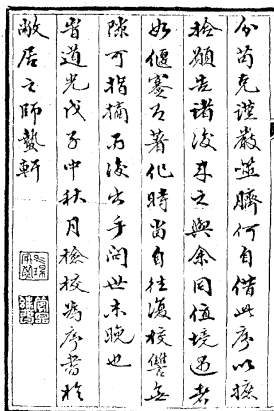 分苟克謹嚴噬臍何自偕此序以據
於願告諸後來之與余同值境遇者
如偃蹇有著作時當自往復校讐無
隙可指摘而後出手問世未晚也
峕道光戊子中秋月檢校為序書於
敝居之師蟄軒